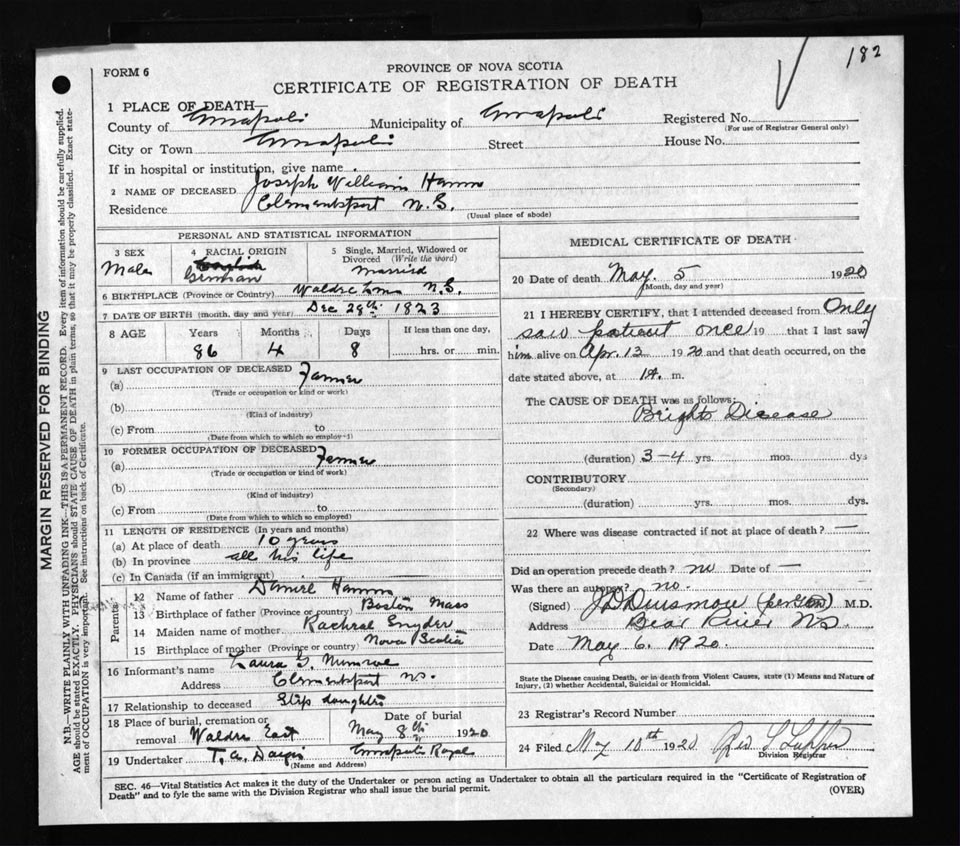 182
FORM 6
PROVINCE OF NOVA SCOTIA
CERTIFICATE OF REGISTRATION OF DEATH
1 PLACE OF DEATH—
County of Annapolis Municipality of Annapolis Registered No.
(For use of Registrar General only)
City or Town Annapolis Street House No.
If in hospital or institution, give name
2 NAME OF DECEASED Joseph William Hamm
Residence Clementsport N.S.
(Usual place of abode)
PERSONAL AND STATISTICAL INFORMATION
3 SEX 4 RACIAL ORIGIN 5 Single, Married, Widowed or Divorced (Write the word)
Male English German married
6 BIRTHPLACE (Province or Country) N.S.
7 DATE OF BIRTH (month, day and year) Dec 28th 1823
8 AGE Years Months Days If less than one day,
86 4 8 hrs. or min.
9 LAST OCCUPATION OF DECEASED
(a) Farmer
(Trade or occupation or kind or work)
(b)
(Kind of industry)
(c) From to
(Date from which to which so employed)
10 FORMER OCCUPATION OF DECEASED
(a) Farmer
(Trade or occupation or kind of work)
(b)
(Kind of industry)
(c) From to
(Date from which to which so employed)
11 LENGTH OF RESIDENCE (In years and months)
(a) At place of death 10 years
(b) In province all his life
(c) In Canada (if an immigrant)
Parents
12 Name of father Daniel Hamm
13 Birthplace of father (Province or country) Boston Mass
14 Maiden name of mother Rachael Snyder
15 Birthplace of mother (Province or country) Nova Scotia
16 Informant's name Laura G. Munroe
Address Clementsport N.S.
17 Relationship to deceased Step daughter
18 Place of burial, cremation or removal Date of burial
Waldec East May 8th 1920
19 Undertaker T. A. Annapolis Royal
(Name and Address)
MEDICAL CERTIFICATE OF DEATH
20 Date of death May 5 1920
(Month, day and year)
21 I HEREBY CERTIFY, that I attended deceased from Only
saw patient once 19 that I last saw
him alive on Apr. 13 1920 and that death occurred, on the
date stated above, at m.
The CAUSE OF DEATH was as follows:
Brights Disease
(duration) 3-4 yrs. mos. dys
CONTRIBUTORY
(Secondary)
(duration) yrs. mos. dys.
22 Where was disease contracted if not at place of death? —
Did an operation precede death? no Date of —
Was there an autopsy? no.
(Signed) M.D.
Address Bear River N.S.
Date May 6. 1920.
State the Disease causing Death, or in death from Violent Causes, state (1) Means and Nature of
Injury, (2) whether Accidental, Suicidal or Homicidal.
23 Registrar's Record Number
24 Filed May 10th 1920
Division Registrar
SEC. 46—Vital Statistics Act makes it the duty of the Undertaker or person acting as Undertaker to obtain all the particulars required in the "Certificate of Registration of
Death" and to fyle the same with the Division Registrar who shall issue the burial permit. (OVER)
MARGIN RESERVED FOR BINDING
N.B.—WRITE PLAINLY WITH UNFADING INK—THIS IS A PERMANENT RECORD. Every item of information should be carefully supplied.
AGE should be stated EXACTLY. PHYSICIANS should STATE CAUSE OF DEATH in plain terms, so that it may be properly classified. Exact statement of OCCUPATION is very important. See instructions on back of Certificate.